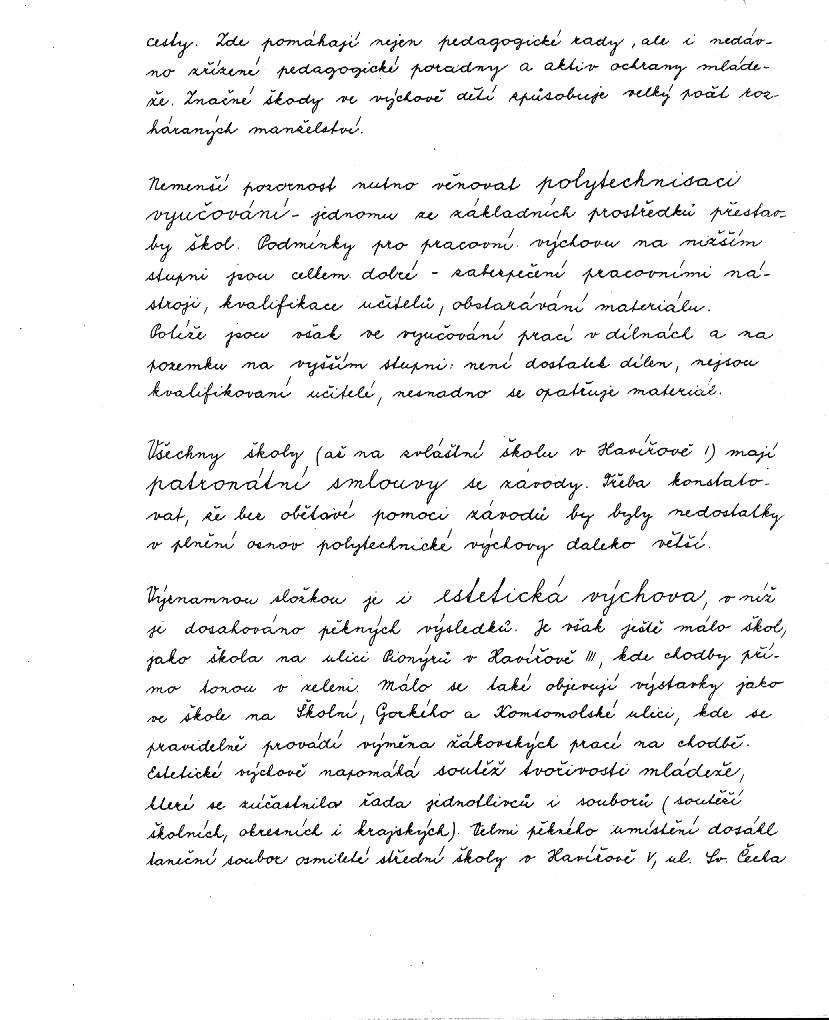 cesty. Zde pomáhají nejen pedagogické rady, ale i nedáv-
no zřízené pedagogické poradny a aktiv ochrany mláde-
že. Značné škody ve výchově dětí způsobuje velký počet roz-
háraných manželství.
Nemenší pozornost nutno věnovat polytechnisaci
vyučování - jednomu ze základních prostředků přestav-
by škol. Podmínky pro pracovní výchovu na nižším
stupni jsou cellem dobré - zabezpečení pracovními ná-
stroji, kvalifikace učitelů, obstarávání materiálu.
Potíže jsou však ve vyučování prací v dílnách a na
pozemku na vyšším stupni: není dostatek dílen, nejsou
kvalifikovaní učitelé, nesnadno se opatřuje materiál.
Všechny školy (až na zvláštní školu v Havířově I) mají
patronátní smlouvy se závody. Třeba konstato-
vat, že bez obětavé pomoci závodů by byly nedostatky
v plnění osnov polytechnické výchovy daleko větší.
Významnou složkou je i estetická výchova, v níž
je dosahováno pěkných výsledků. Je však ještě málo škol,
jako škola na ulici Pionýrů v Havířově III, kde chodby pří-
mo tonou v zeleni. Málo se také objevují výstavky jako
ve škole na Školní, Gorkého a Komsomolské ulici, kde se
pravidelně provádí výměna žákovských prací na chodbě.
Estetické výchově napomáhá soutěž tvořivosti mládeže,
které se zúčastnila řada jednotlivců i souborů (soutěží
školních, okresních i krajských). Velmi pěkného umístění dosáhl
taneční soubor osmileté střední školy v Havířově V, ul. Sv. Čecha